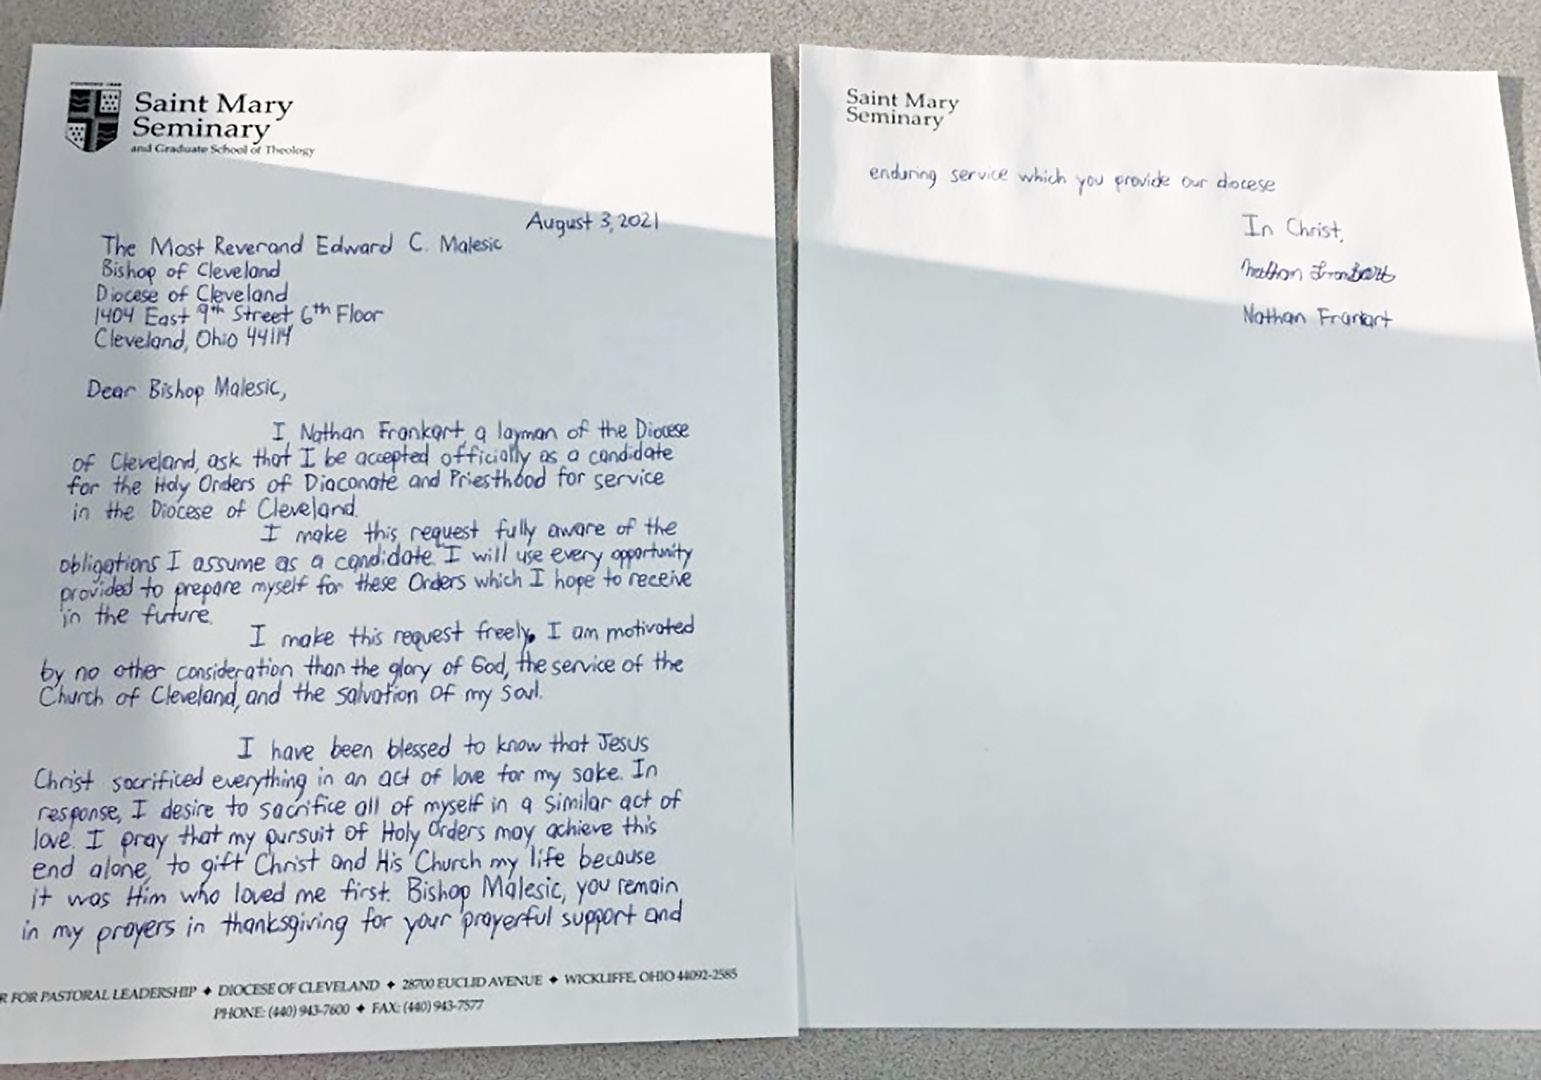 FOUNDED 1848
Saint Mary
Seminary
and Graduate School of Theology
August 3, 2021
The Most Reverand Edward C. Malesic
Bishop of Cleveland
Diocese of Cleveland
1404 East 9th Street 6th Floor
Cleveland, Ohio 44114
Dear Bishop Malesic,
I Nathan Frankart, a layman of the Diocese
of Cleveland, ask that I be accepted officially as a candidate
for the Holy Orders of Diaconate and Priesthood for service
in the Diocese of Cleveland.
I make this request fully aware of the
obligations I assume as a candidate. I will use every opportunity
provided to prepare myself for these Orders which I hope to receive
in the future.
I make this request freely. I am motivated
by no other consideration than the glory of God, the service of the
Church of Cleveland, and the salvation of my soul.
I have been blessed to know that Jesus
Christ sacrificed everything in an act of love for my sake. In
response, I desire to sacrifice all of myself in a similar act of
love. I pray that my pursuit of Holy Orders may achieve this
end alone, to gift Christ and His Church my life because
it was Him who loved me first. Bishop Malesic, you remain
in my prayers in thanksgiving for your prayerful support and
R FOR PASTORAL LEADERSHIP ✦ DIOCESE OF CLEVELAND ✦ 28700 EUCLID AVENUE ✦ WICKLIFFE, OHIO 44092-2585
PHONE: (440) 943-7600 ✦ FAX: (440) 943-7577
Saint Mary
Seminary
enduring service which you provide our diocese
In Christ,
Nathan Frankart
Nathan Frankart